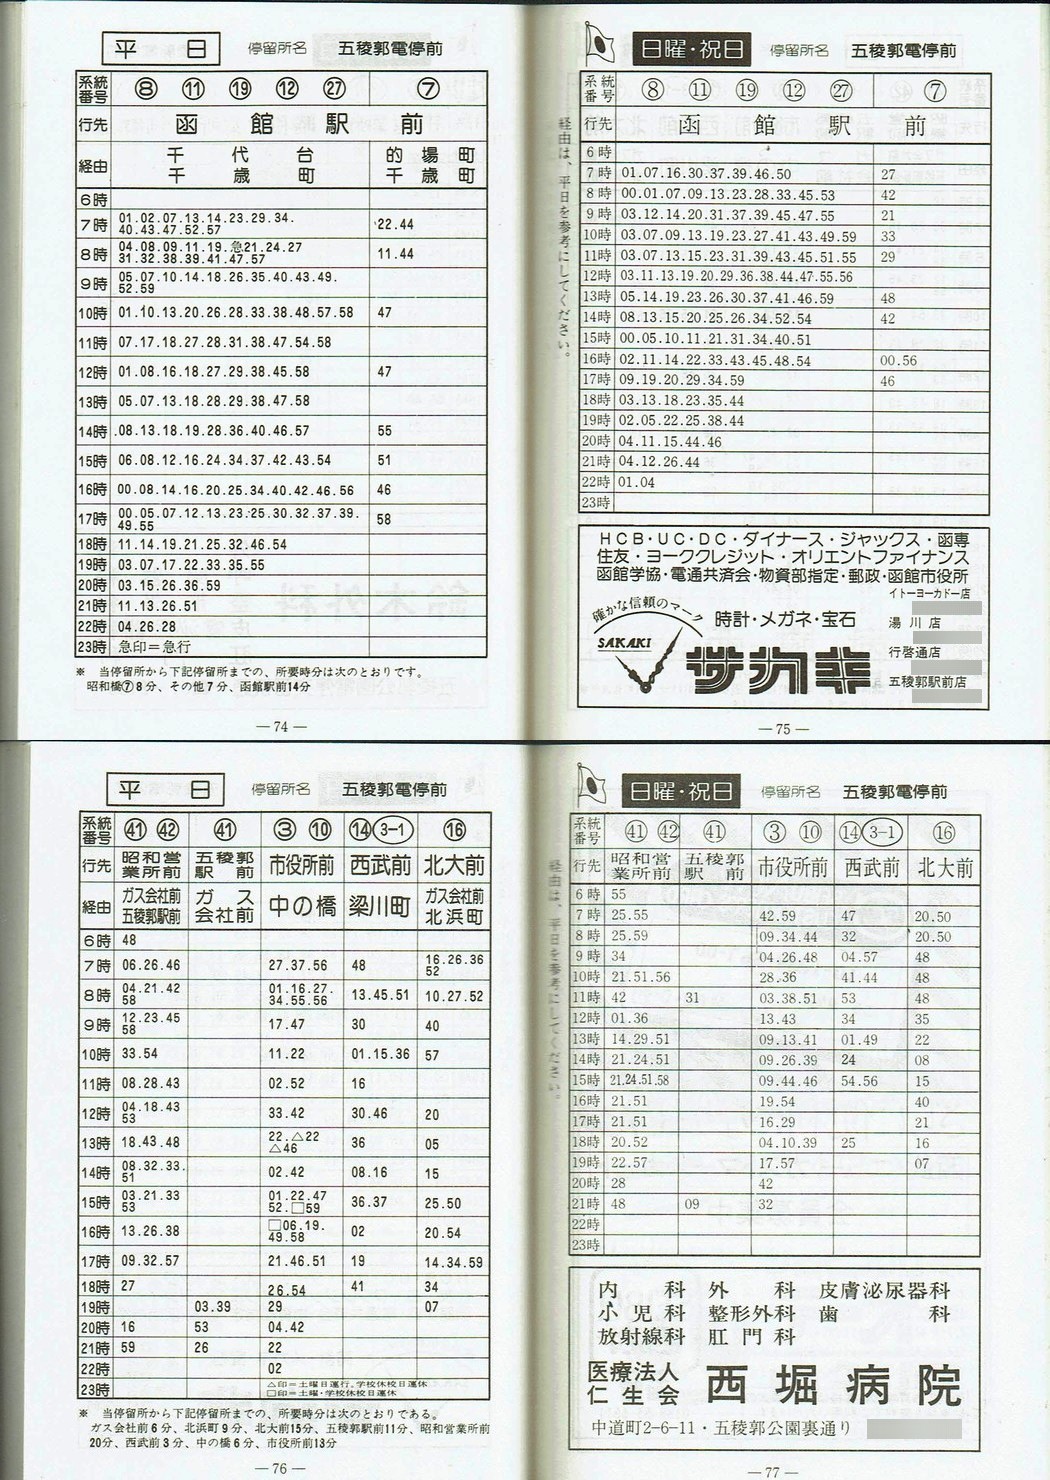 平　日　停留所名　五稜郭電停前
系統番号　⑧　⑪　⑲　⑫　㉗　⑦
行先　函館駅前
経由　千代台　千歳町　的場町　千歳町
6時
7時　01.02.07.13.14.23.29.34.　22.44
40.43.47.52.57
8時　04.08.09.11.19.急21.24.27　11.44
31.32.38.39.41.47.57
9時　05.07.10.14.18.26.35.40.43.49.
52.59
10時　01.10.13.20.26.28.33.38.48.57.58　47
11時　07.17.18.27.28.31.38.47.54.58
12時　01.08.16.18.27.29.38.45.58　47
13時　05.07.13.18.28.29.38.47.58
14時　08.13.18.19.28.36.40.46.57　55
15時　06.08.12.16.24.34.37.42.43.54　51
16時　00.08.14.16.20.25.34.40.42.46.56　46
17時　00.05.07.12.13.23.25.30.32.37.39.　58
49.55
18時　11.14.19.21.25.32.46.54
19時　03.07.17.22.33.35.55
20時　03.15.26.36.59
21時　11.13.26.51
22時　04.26.28
23時　急印＝急行
※　当停留所から下記停留所までの、所要時分は次のとおりです。
昭和橋⑦8分、その他7分、函館駅前14分
— 74 —
日曜・祝日　停留所名　五稜郭電停前
系統番号　⑧　⑪　⑲　⑫　㉗　⑦
行先　函館駅前
6時
7時　01.07.16.30.37.39.46.50　27
8時　00.01.07.09.13.23.28.33.45.53　42
9時　03.12.14.20.31.37.39.45.47.55　21
10時　03.07.09.13.19.23.27.41.43.49.59　33
11時　03.07.13.15.23.31.39.43.45.51.55　29
12時　03.11.13.19.20.29.36.38.44.47.55.56
13時　05.14.19.23.26.30.37.41.46.59　48
14時　08.13.15.20.25.26.34.52.54　42
15時　00.05.10.11.21.31.34.40.51
16時　02.11.14.22.33.43.45.48.54　00.56
17時　09.19.20.29.34.59　46
18時　03.13.18.23.35.44
19時　02.05.22.25.38.44
20時　04.11.15.44.46
21時　04.12.26.44
22時　01.04
23時
経由は、平日を参考にしてください。
HCB・UC・DC・ダイナース・ジャックス・函専
住友・ヨーククレジット・オリエントファイナンス
函館学協・電通共済会・物資部指定・郵政・函館市役所
確かな信頼のマーク
SAKAKI
時計・メガネ・宝石
サカキ
イトーヨーカドー店
湯川店
行啓通店
五稜郭駅前店
— 75 —
平　日　停留所名　五稜郭電停前
系統番号　㊶　㊷　㊶　③　⑩　⑭　3-1　⑯
行先　昭和営業所前　五稜郭駅前　市役所前　西武前　北大前
経由　ガス会社前　五稜郭駅前　ガス会社前　中の橋　梁川町　ガス会社前　北浜町
6時　48
7時　06.26.46　27.37.56　48　16.26.36
52
8時　04.21.42　01.16.27.　13.45.51　10.27.52
58　34.55.56
9時　12.23.45　17.47　30　40
58
10時　33.54　11.22　01.15.36　57
11時　08.28.43　02.52　16
12時　04.18.43　33.42　30.46　20
53
13時　18.43.48　22.△22　36　05
△46
14時　08.32.33.　02.42　08.16　15
51
15時　03.21.33　01.22.47　36.37　25.50
53　52.□59
16時　13.26.38　□06.19.　02　20.54
49.58
17時　09.32.57　21.46.51　19　14.34.59
18時　27　26.54　41　34
19時　03.39　29　07
20時　16　53　04.42
21時　59　26　22
22時　02
23時　△印＝土曜日運行。学校休校日運休
□印＝土曜・学校休校日運休
※　当停留所から下記停留所までの、所要時分は次のとおりである。
ガス会社前6分、北浜町9分、北大前15分、五稜郭駅前11分、昭和営業所前
20分、西武前3分、中の橋6分、市役所前13分
— 76 —
日曜・祝日　停留所名　五稜郭電停前
系統番号　㊶　㊷　㊶　③　⑩　⑭　3-1　⑯
行先　昭和営業所前　五稜郭駅前　市役所前　西武前　北大前
6時　55
7時　25.55　42.59　47　20.50
8時　25.59　09.34.44　32　20.50
9時　34　04.26.48　04.57　48
10時　21.51.56　28.36　41.44　48
11時　42　31　03.38.51　53　48
12時　01.36　13.43　34　35
13時　14.29.51　09.13.41　01.49　22
14時　21.24.51　09.26.39　24　08
15時　21.24.51.58　09.44.46　54.56　15
16時　21.51　19.54　40
17時　21.51　16.29　21
18時　20.52　04.10.39　25　16
19時　22.57　17.57　07
20時　28　42
21時　48　09　32
22時
23時
経由は、平日を参考にしてください。
内科　外科　皮膚泌尿器科
小児科　整形外科　歯科
放射線科　肛門科
医療法人仁生会　西堀病院
中道町2-6-11・五稜郭公園裏通り
— 77 —